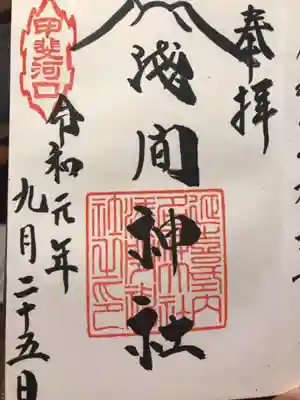 奉拝
浅間神社
甲斐河口
令和元年
九月二十五日